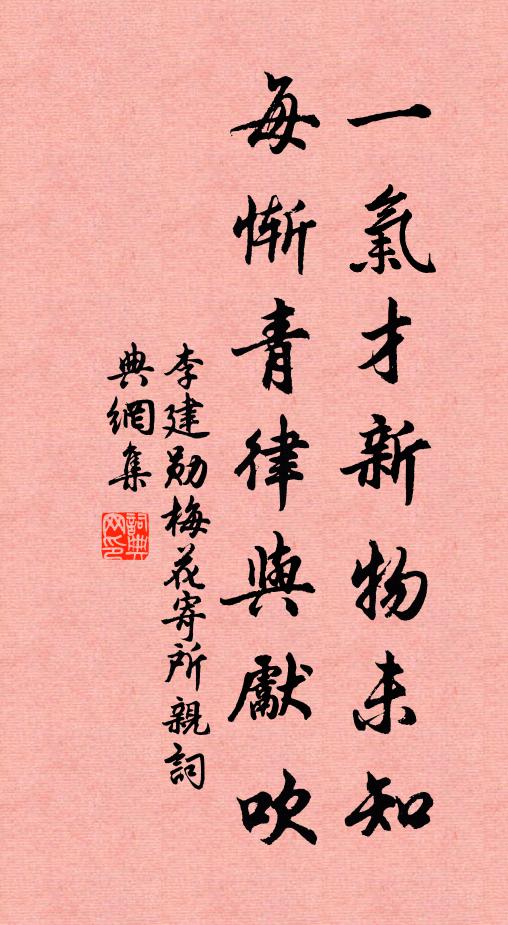 一氣才新物未知
每慚青律與獻吹
李建勋梅花寄所親詞
典網集
詞典
网印